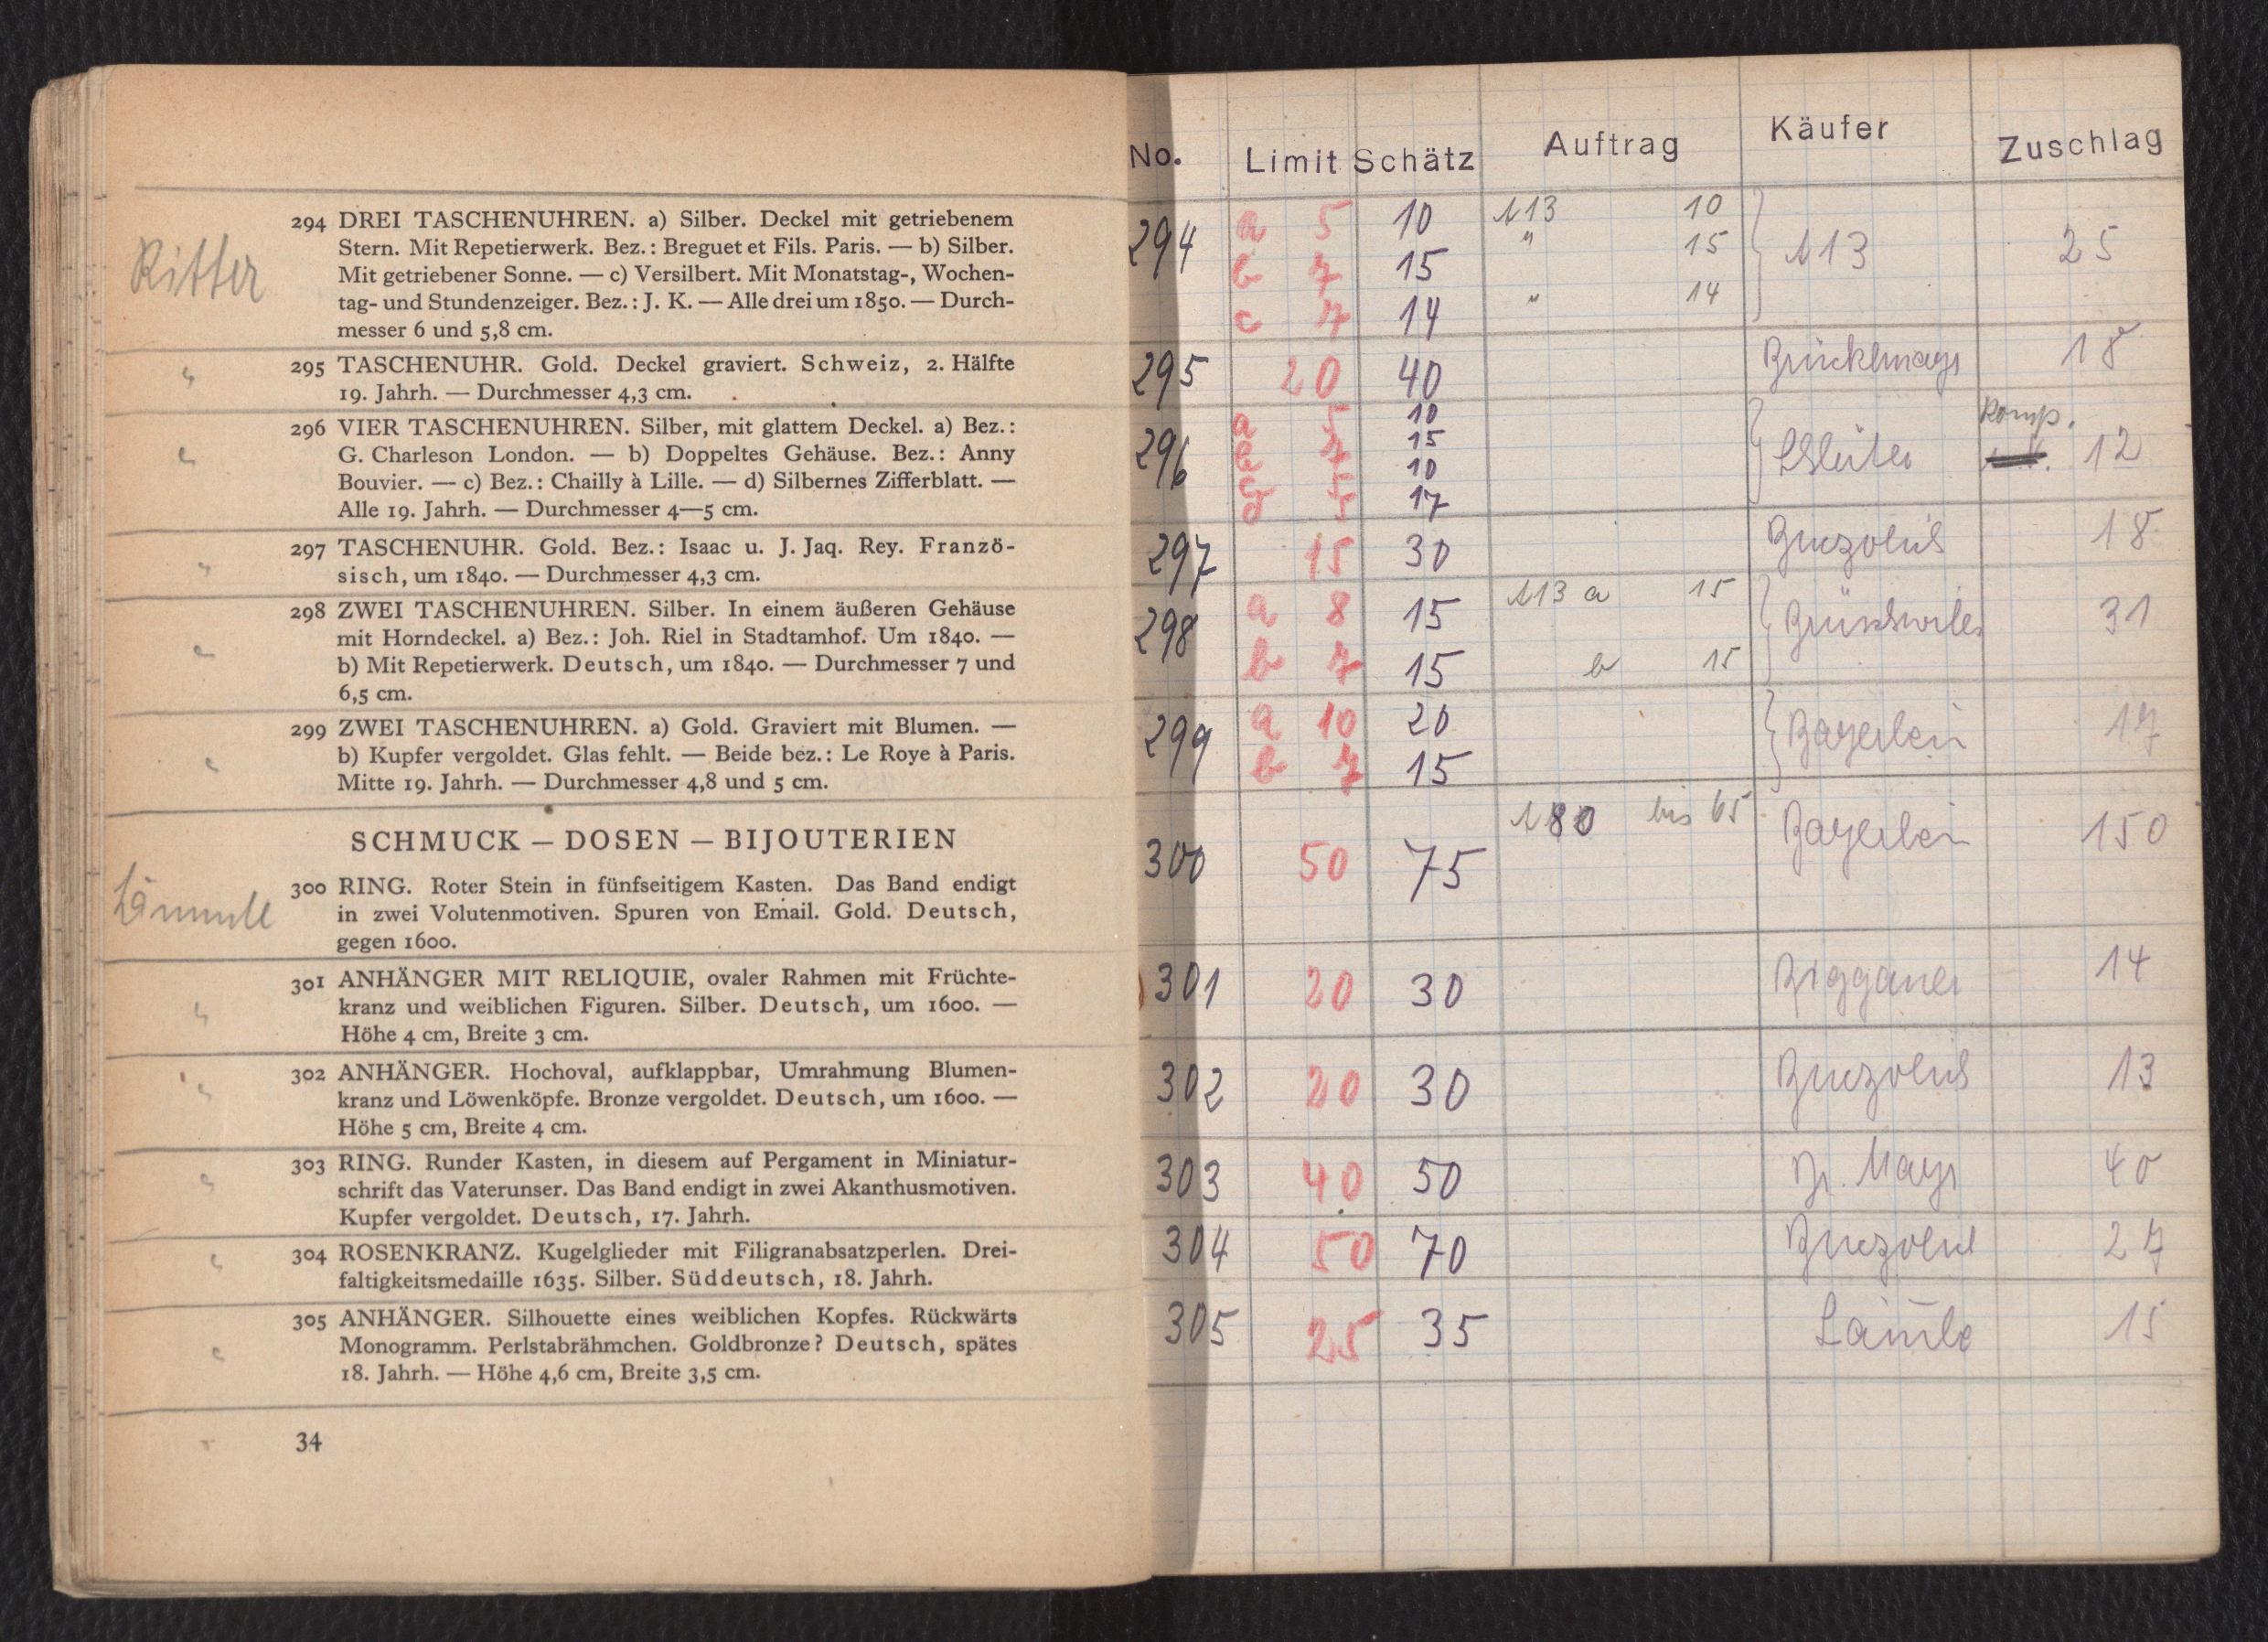 294 DREI TASCHENUHREN. a) Silber. Deckel mit getriebenem
Stern. Mit Repetierwerk. Bez.: Breguet et Fils. Paris. — b) Silber.
Ritter
Mit getriebener Sonne. — c) Versilbert. Mit Monatstag-, Wochen-
tag- und Stundenzeiger. Bez.: J. K. — Alle drei um 1850. — Durch-
messer 6 und 5,8 cm.
" 295 TASCHENUHR. Gold. Deckel graviert. Schweiz, 2. Hälfte
19. Jahrh. — Durchmesser 4,3 cm.
" 296 VIER TASCHENUHREN. Silber, mit glattem Deckel. a) Bez.:
G. Charleson London. — b) Doppeltes Gehäuse. Bez.: Anny
Bouvier. — c) Bez.: Chailly à Lille. — d) Silbernes Zifferblatt. —
Alle 19. Jahrh. — Durchmesser 4—5 cm.
" 297 TASCHENUHR. Gold. Bez.: Isaac u. J. Jaq. Rey. Franzö-
sisch, um 1840. — Durchmesser 4,3 cm.
" 298 ZWEI TASCHENUHREN. Silber. In einem äußeren Gehäuse
mit Horndeckel. a) Bez.: Joh. Riel in Stadtamhof. Um 1840. —
b) Mit Repetierwerk. Deutsch, um 1840. — Durchmesser 7 und
6,5 cm.
" 299 ZWEI TASCHENUHREN. a) Gold. Graviert mit Blumen. —
b) Kupfer vergoldet. Glas fehlt. — Beide bez.: Le Roye à Paris.
Mitte 19. Jahrh. — Durchmesser 4,8 und 5 cm.
SCHMUCK – DOSEN – BIJOUTERIEN
300 RING. Roter Stein in fünfseitigem Kasten. Das Band endigt
in zwei Volutenmotiven. Spuren von Email. Gold. Deutsch,
gegen 1600.
" 301 ANHÄNGER MIT RELIQUIE, ovaler Rahmen mit Früchte-
kranz und weiblichen Figuren. Silber. Deutsch, um 1600. —
Höhe 4 cm, Breite 3 cm.
" 302 ANHÄNGER. Hochoval, aufklappbar, Umrahmung Blumen-
kranz und Löwenköpfe. Bronze vergoldet. Deutsch, um 1600. —
Höhe 5 cm, Breite 4 cm.
" 303 RING. Runder Kasten, in diesem auf Pergament in Miniatur-
schrift das Vaterunser. Das Band endigt in zwei Akanthusmotiven.
Kupfer vergoldet. Deutsch, 17. Jahrh.
" 304 ROSENKRANZ. Kugelglieder mit Filigranabsatzperlen. Drei-
faltigkeitsmedaille 1635. Silber. Süddeutsch, 18. Jahrh.
" 305 ANHÄNGER. Silhouette eines weiblichen Kopfes. Rückwärts
Monogramm. Perlstabrähmchen. Goldbronze? Deutsch, spätes
18. Jahrh. — Höhe 4,6 cm, Breite 3,5 cm.
34
No. Limit Schätz Auftrag Käufer Zuschlag
294 a 5 10 N13 10 N13 25
b 7 15 " 15
c 7 14 " 14
295 20 40 18
296 a 5 10 Komp.
b 7 15 12
c 5 10
d 5 17
297 15 30 18
298 a 8 15 N13 a 15 31
b 7 15 b 15
299 a 10 20 Bayerlein 17
b 7 15
300 50 75 N80 bis 65 Bayerlein 150
301 20 30 14
302 20 30 13
303 40 50 Dr. Mayr 40
304 50 70 27
305 25 35 15